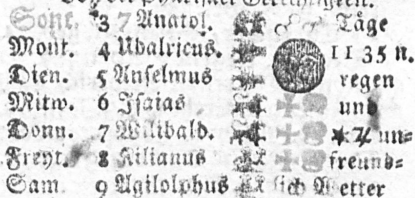 Sont. 3 7 Anatol. Täge
Mont. 4 Udalricus. 11 35 n.
Dien. 5 Anselmus regen
Mitw. 6 Isaias und
Donn. 7 Wilibald. un⸗
Freyt. 8 Kilianus freund⸗
Sam. 9 Agilolphus lich Wetter